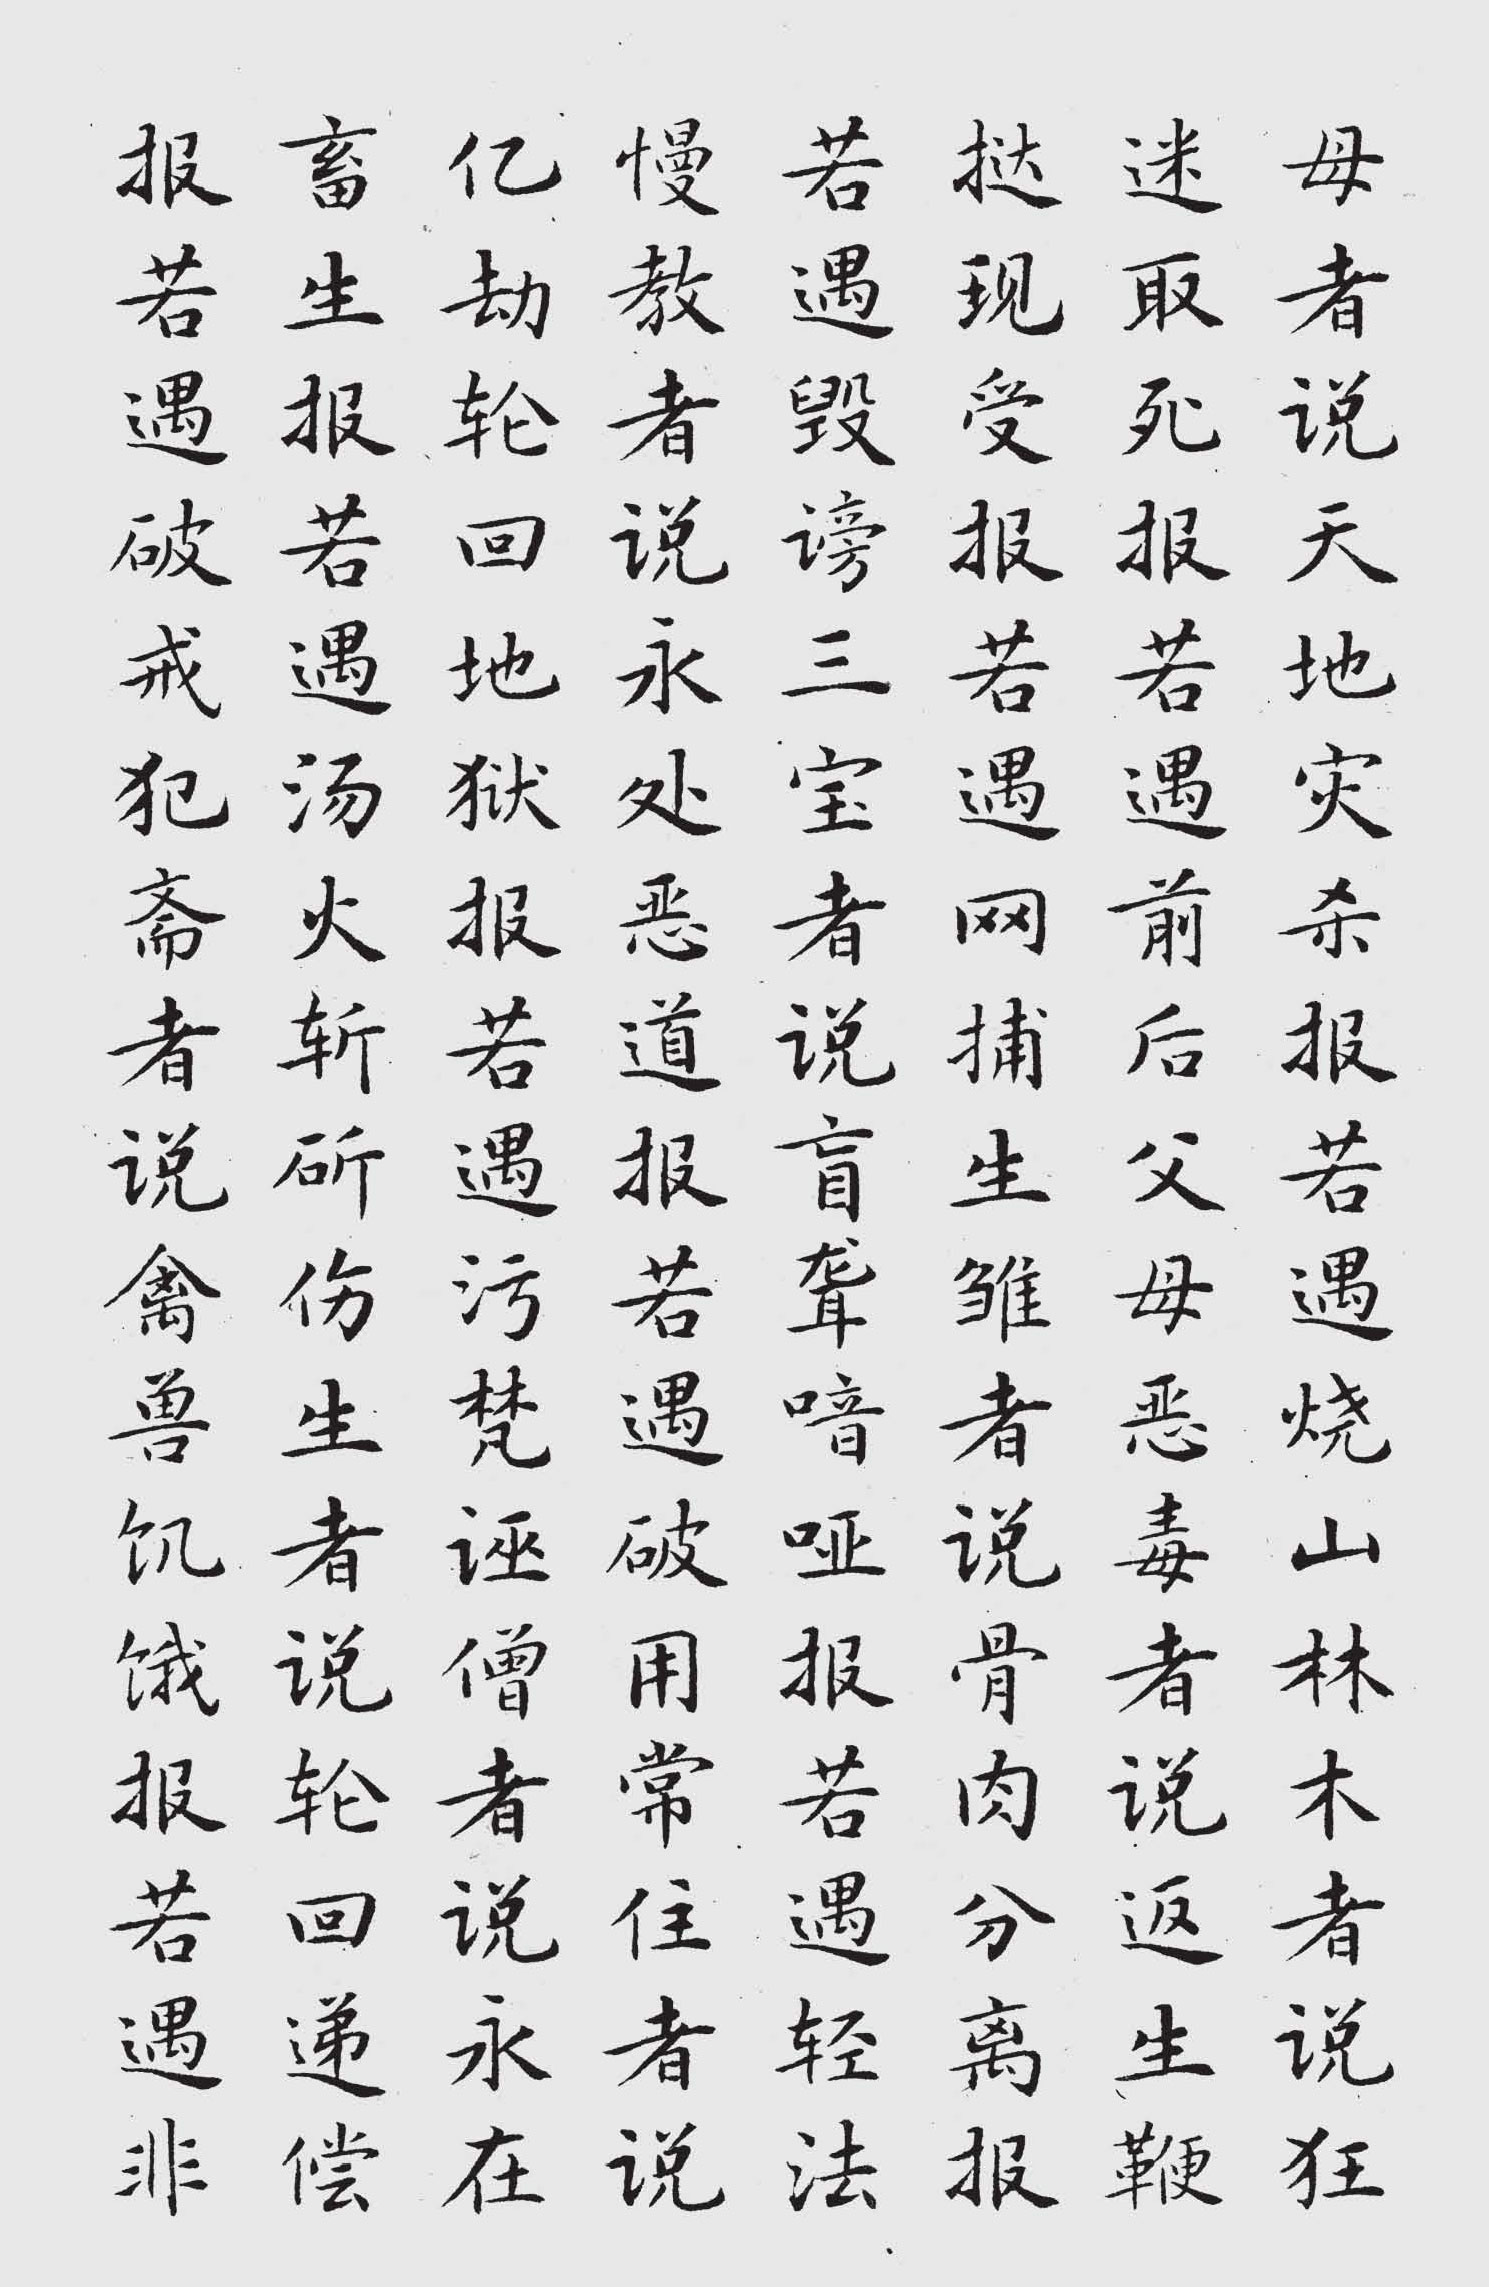 母者说天地灾杀报若遇烧山林木者说狂
迷取死报若遇前后父母恶毒者说返生鞭
挞现受报若遇网捕生雏者说骨肉分离报
若遇毁谤三宝者说盲聋喑哑报若遇轻法
慢教者说永处恶道报若遇破用常住者说
亿劫轮回地狱报若遇污梵诬僧者说永在
畜生报若遇汤火斩斫伤生者说轮回递偿
报若遇破戒犯斋者说禽兽饥饿报若遇非